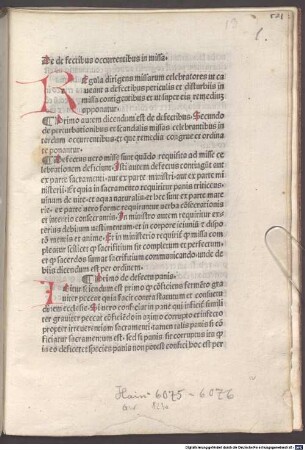 De defectibus occurrentibus in missa.
Regula dirigens missarum celebratores ut ca
ueant a defectibus periculis et disturbiis in
missa contigentibus et ut super eis remedium
apponant.
¶ Primo autem dicendum est de defectibus. Secundo
de perturbationibus et scandalis missas celebrantibus in
terdum occurrentibus et que remedia congrue et ordinate
ponantur.
¶ Defectus uero misse sunt quando requisita ad misse ce
lebrationem deficiunt. Isti autem defectus contigunt aut
ex parte sacramenti aut ex parte ministri aut ex parte mi
nisterii. Et quia in sacramento requiritur panis triticeus
uinum de uite et aqua naturalis et hec sunt ex parte mate
rie ex parte uero forme requiruntur uerba consecrationis
et intentio conscerantis. In ministro autem requiritur
debitum uestimentum et in corpore ieiunium
mentis et animo. Et in ministerio requiritur quod missa com
pleatur scilicet quod sacrificium sit completum et perfectum
et quod sacerdos sumat sacrificium communicando unde de
hiis dicendum est per ordinem.
¶ Primo de defectu panis.
Igitur sciendum est primo quod conficiens fermento gra
uiter peccat quia facit contra statutum et consuetu
dinem ecclesie. Si uero conficiat in pane qui inficit simili
ter grauiter peccat conficiendo in azimo corrupto et infecto
propter irreuerentiam sacramenti tamen talis panis si confi
ciatur sacramentum est sed si panis sic corruptus
deficeret species panis non potest confici hoc est per
Hain 6075 - 6076